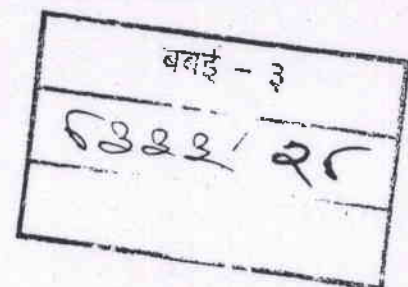 बबई - ३
८३३३/ २८